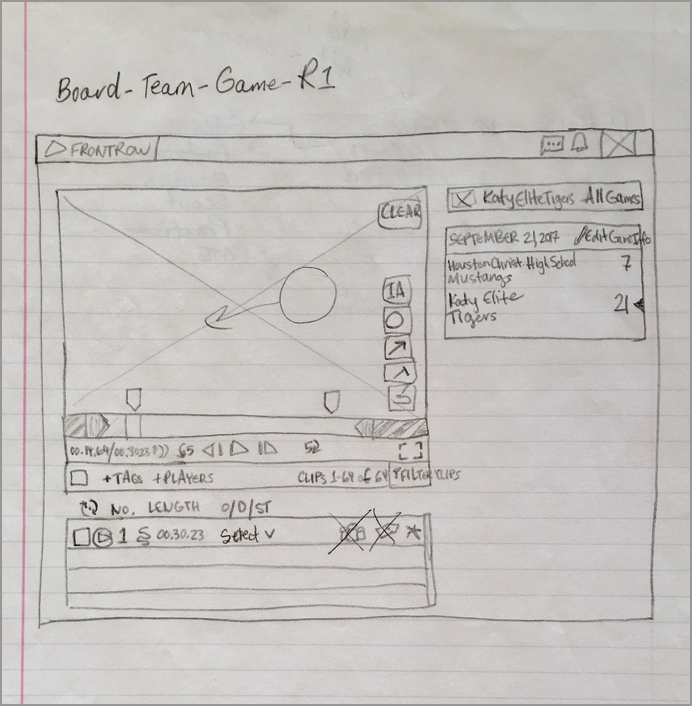 Board-Team-Game-R1
FRONTROW
CLEAR
KatyEliteTigers All Games
SEPTEMBER 21, 2017 Edit GameInfo
Houston Christ High School 7
Mustangs
Katy Elite 21
Tigers
00.14.64/00.30.23
+TAGS +PLAYERS CLIPS 1-64 of 64 FILTER CLIPS
NO. LENGTH O/D/ST
1 00.30.23 Select